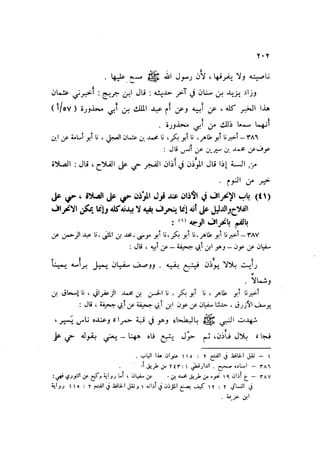 ٢٠٢
ناصيته ولا يفرقها، لأن رسول الله ﷺ مسح عليها.
وزاد يزيد بن سنان في آخر حديثه: قال ابن جريج: أخبرني عثمان
هذا الخبر كله، عن أبيه وعن أم عبد الملك بن أبي محذورة (٥٧/أ)
أنهما سمعا ذلك من أبي محذورة.
٣٨٦ – أخبرنا أبو طاهر، نا أبو بكر، نا محمد بن عثمان العجلي، نا أبو أسامة عن ابن
عوف عن محمد بن سيرين عن أنس قال:
من السنة إذا قال المؤذن في أذان الفجر حي على الفلاح، قال: الصلاة
خير من النوم.
(٤١) باب الإنحراف في الأذان عند قول المؤذن حي على الصلاة، حي على
الفلاح والدليل على أنه إنما ينحرف بفيه لا ببدنه كله وإنما يمكن الانحراف
بالفم بانحراف الوجه (١):
٣٨٧ – أخبرنا أبو طاهر، نا أبو بكر، نا أبو موسى محمد بن المثنى، نا عبد الرحمن عن
سفيان عن عون – وهو ابن أبي جحيفة – عن أبيه، قال:
رأيت بلالا يؤذن فيتبع بفيه. ووصف سفيان يميل برأسه يمينا
وشمالا.
أخبرنا أبو طاهر، نا أبو بكر، نا الحسن بن محمد الزعفراني، نا إسحاق بن
يوسف الأزرق، حدثنا سفيان عن عون ابن أبي جحيفة عن أبي جحيفة، قال:
شهدت النبي ﷺ بالبطحاء وهو في قبة حمراء وعنده ناس يسير،
فجاء بلال فأذن، ثم حول يتبع فاه ههنا – يعني بقوله حي على
١ – نقل الحافظ في الفتح ٢: ١١٥ عنوان هذا الباب.
٣٨٦ – إسناده صحيح. الدارقطني ١: ٢٤٣ من طريق أبي
٣٨٧ – خ أذان ١٩ نحوه من طريق محمد بن عن سفيان، أما رواية وكيع عن الثوري فهي:
في النسائي ٢: ١٢ كيف يصنع المؤذن في أذانه، ونقل الحافظ في الفتح ٢: ١١٥ رواية
ابن خزيمة.